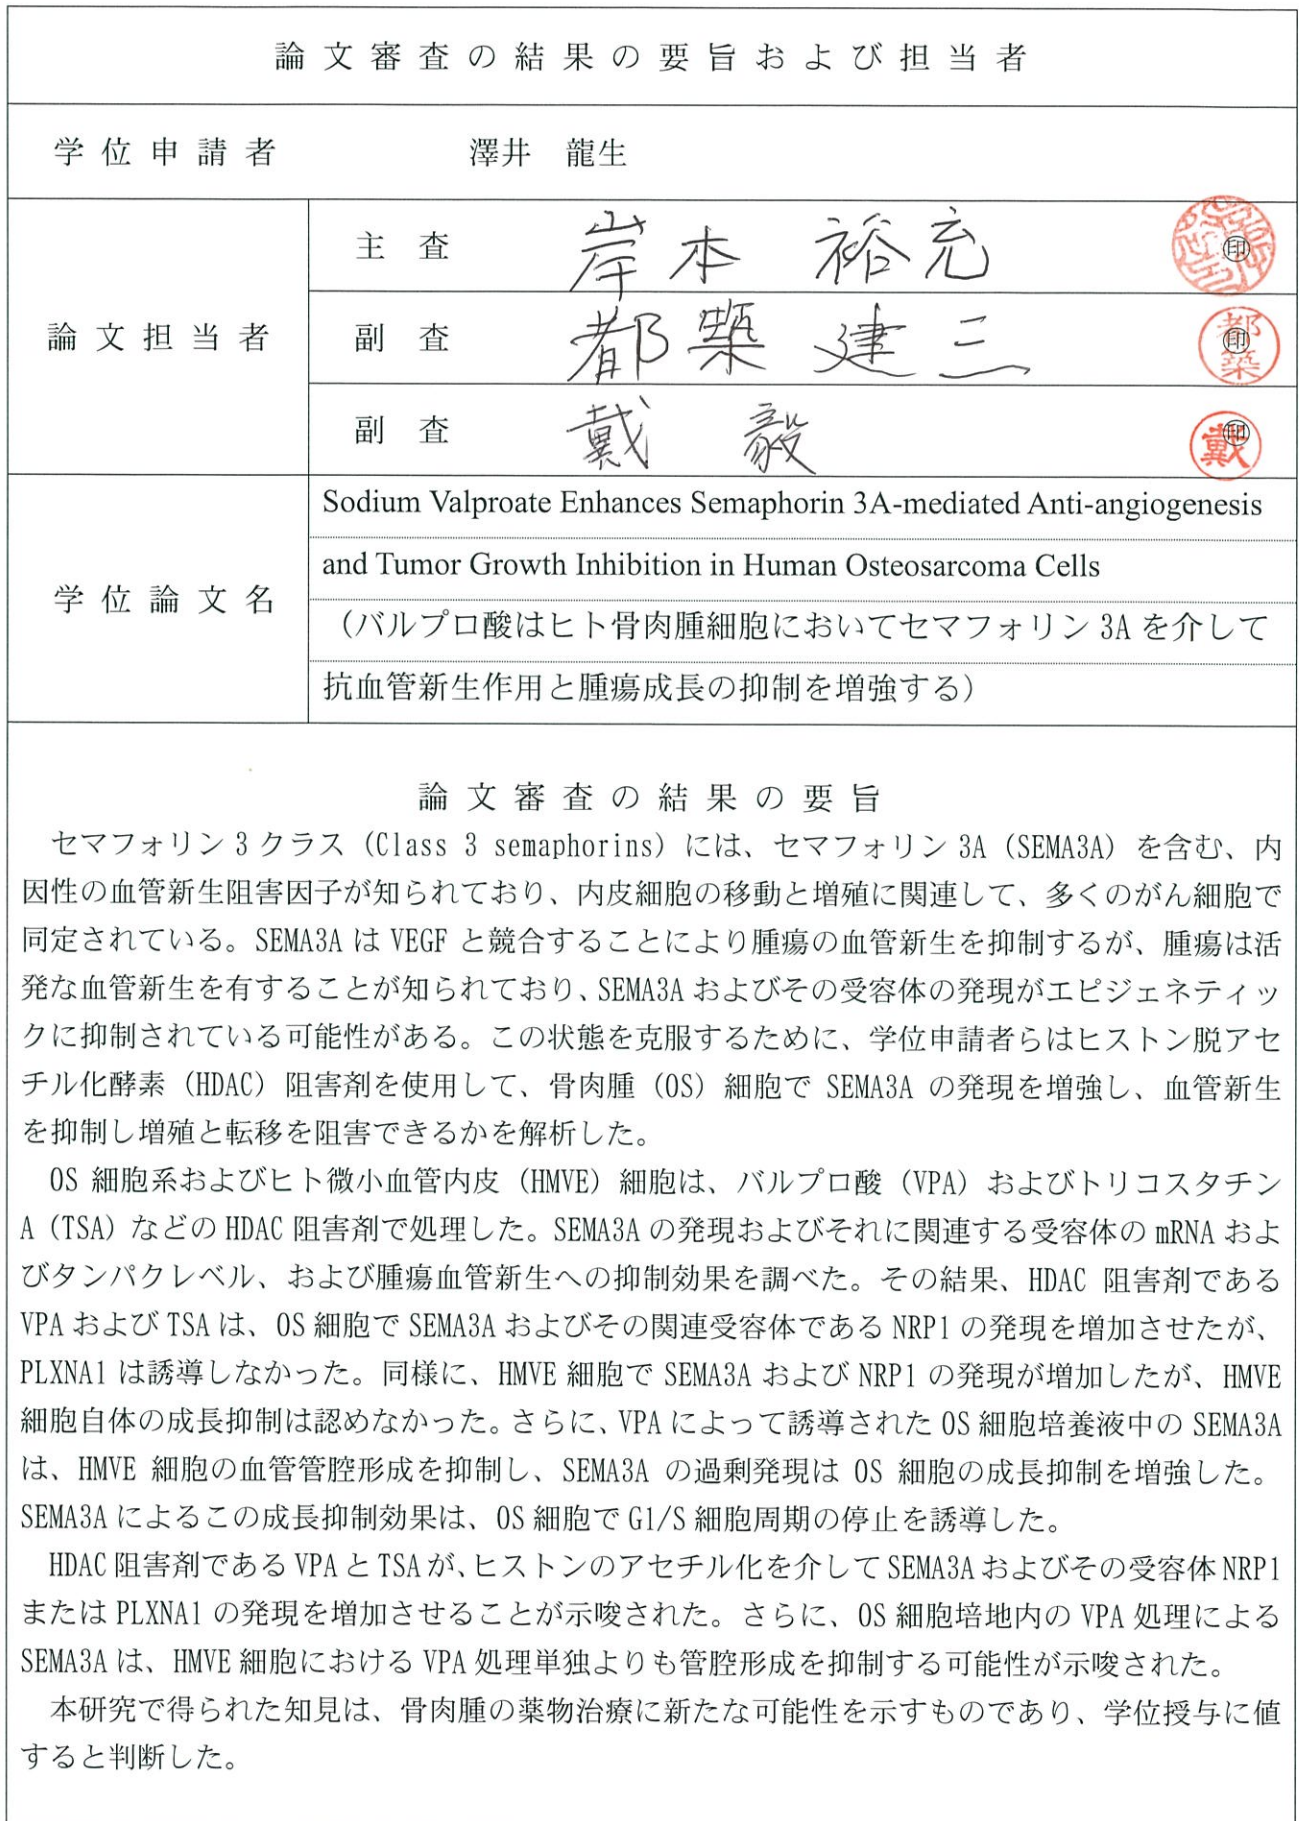 論文審査の結果の要旨および担当者
学位申請者 澤井 龍生
論文担当者
主査 岸本 裕充 印
副査 都築 建三 印
都築
副査 戴 毅 印
戴
学位論文名
Sodium Valproate Enhances Semaphorin 3A-mediated Anti-angiogenesis
and Tumor Growth Inhibition in Human Osteosarcoma Cells
(バルプロ酸はヒト骨肉腫細胞においてセマフォリン 3A を介して
抗血管新生作用と腫瘍成長の抑制を増強する)
論文審査の結果の要旨
セマフォリン 3 クラス (Class 3 semaphorins) には、セマフォリン 3A (SEMA3A) を含む、内
因性の血管新生阻害因子が知られており、内皮細胞の移動と増殖に関連して、多くのがん細胞で
同定されている。SEMA3A は VEGF と競合することにより腫瘍の血管新生を抑制するが、腫瘍は活
発な血管新生を有することが知られており、SEMA3A およびその受容体の発現がエピジェネティッ
クに抑制されている可能性がある。この状態を克服するために、学位申請者らはヒストン脱アセ
チル化酵素 (HDAC) 阻害剤を使用して、骨肉腫 (OS) 細胞で SEMA3A の発現を増強し、血管新生
を抑制し増殖と転移を阻害できるかを解析した。
OS 細胞系およびヒト微小血管内皮 (HMVE) 細胞は、バルプロ酸 (VPA) およびトリコスタチン
A (TSA) などの HDAC 阻害剤で処理した。SEMA3A の発現およびそれに関連する受容体の mRNA およ
びタンパクレベル、および腫瘍血管新生への抑制効果を調べた。その結果、HDAC 阻害剤である
VPA および TSA は、OS 細胞で SEMA3A およびその関連受容体である NRP1 の発現を増加させたが、
PLXNA1 は誘導しなかった。同様に、HMVE 細胞で SEMA3A および NRP1 の発現が増加したが、HMVE
細胞自体の成長抑制は認めなかった。さらに、VPA によって誘導された OS 細胞培養液中の SEMA3A
は、HMVE 細胞の血管管腔形成を抑制し、SEMA3A の過剰発現は OS 細胞の成長抑制を増強した。
SEMA3A によるこの成長抑制効果は、OS 細胞で G1/S 細胞周期の停止を誘導した。
HDAC 阻害剤である VPA と TSA が、ヒストンのアセチル化を介して SEMA3A およびその受容体 NRP1
または PLXNA1 の発現を増加させることが示唆された。さらに、OS 細胞培地内の VPA 処理による
SEMA3A は、HMVE 細胞における VPA 処理単独よりも管腔形成を抑制する可能性が示唆された。
本研究で得られた知見は、骨肉腫の薬物治療に新たな可能性を示すものであり、学位授与に値
すると判断した。